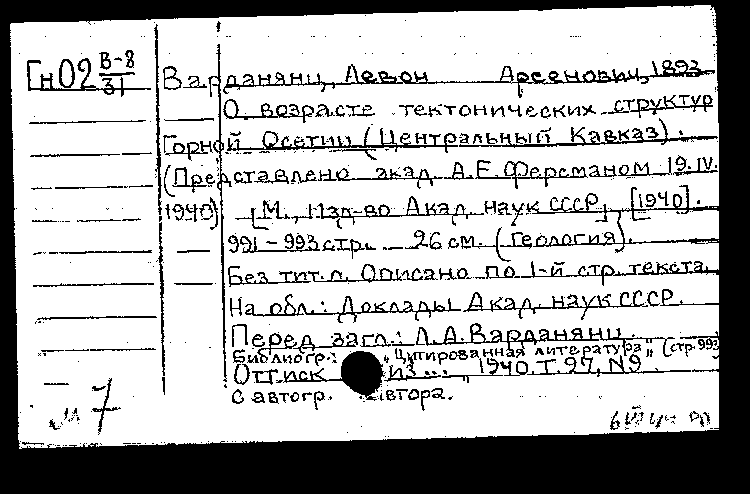 Гн02 В-8/31
Варданянц, Левон Арсенович, 1893
О возрасте тектонических структур
Горной Осетии (Центральный Кавказ).
(Представлено акад. А.Е.Ферсманом 19.IV.
1940) [М., Изд-во Акад. наук СССР], [1940].
991-993 стр. 26 см. (Геология).
Без тит.л. Описано по 1-й стр. текста.
На обл.: Доклады Акад. наук СССР.
Перед загл.: Л.А.Варданянц.
Библиогр.: "Цитированная литература" (стр. 993
Оттиск из ... " 1940. Т. 27, N9
С автогр. автора.
м 7